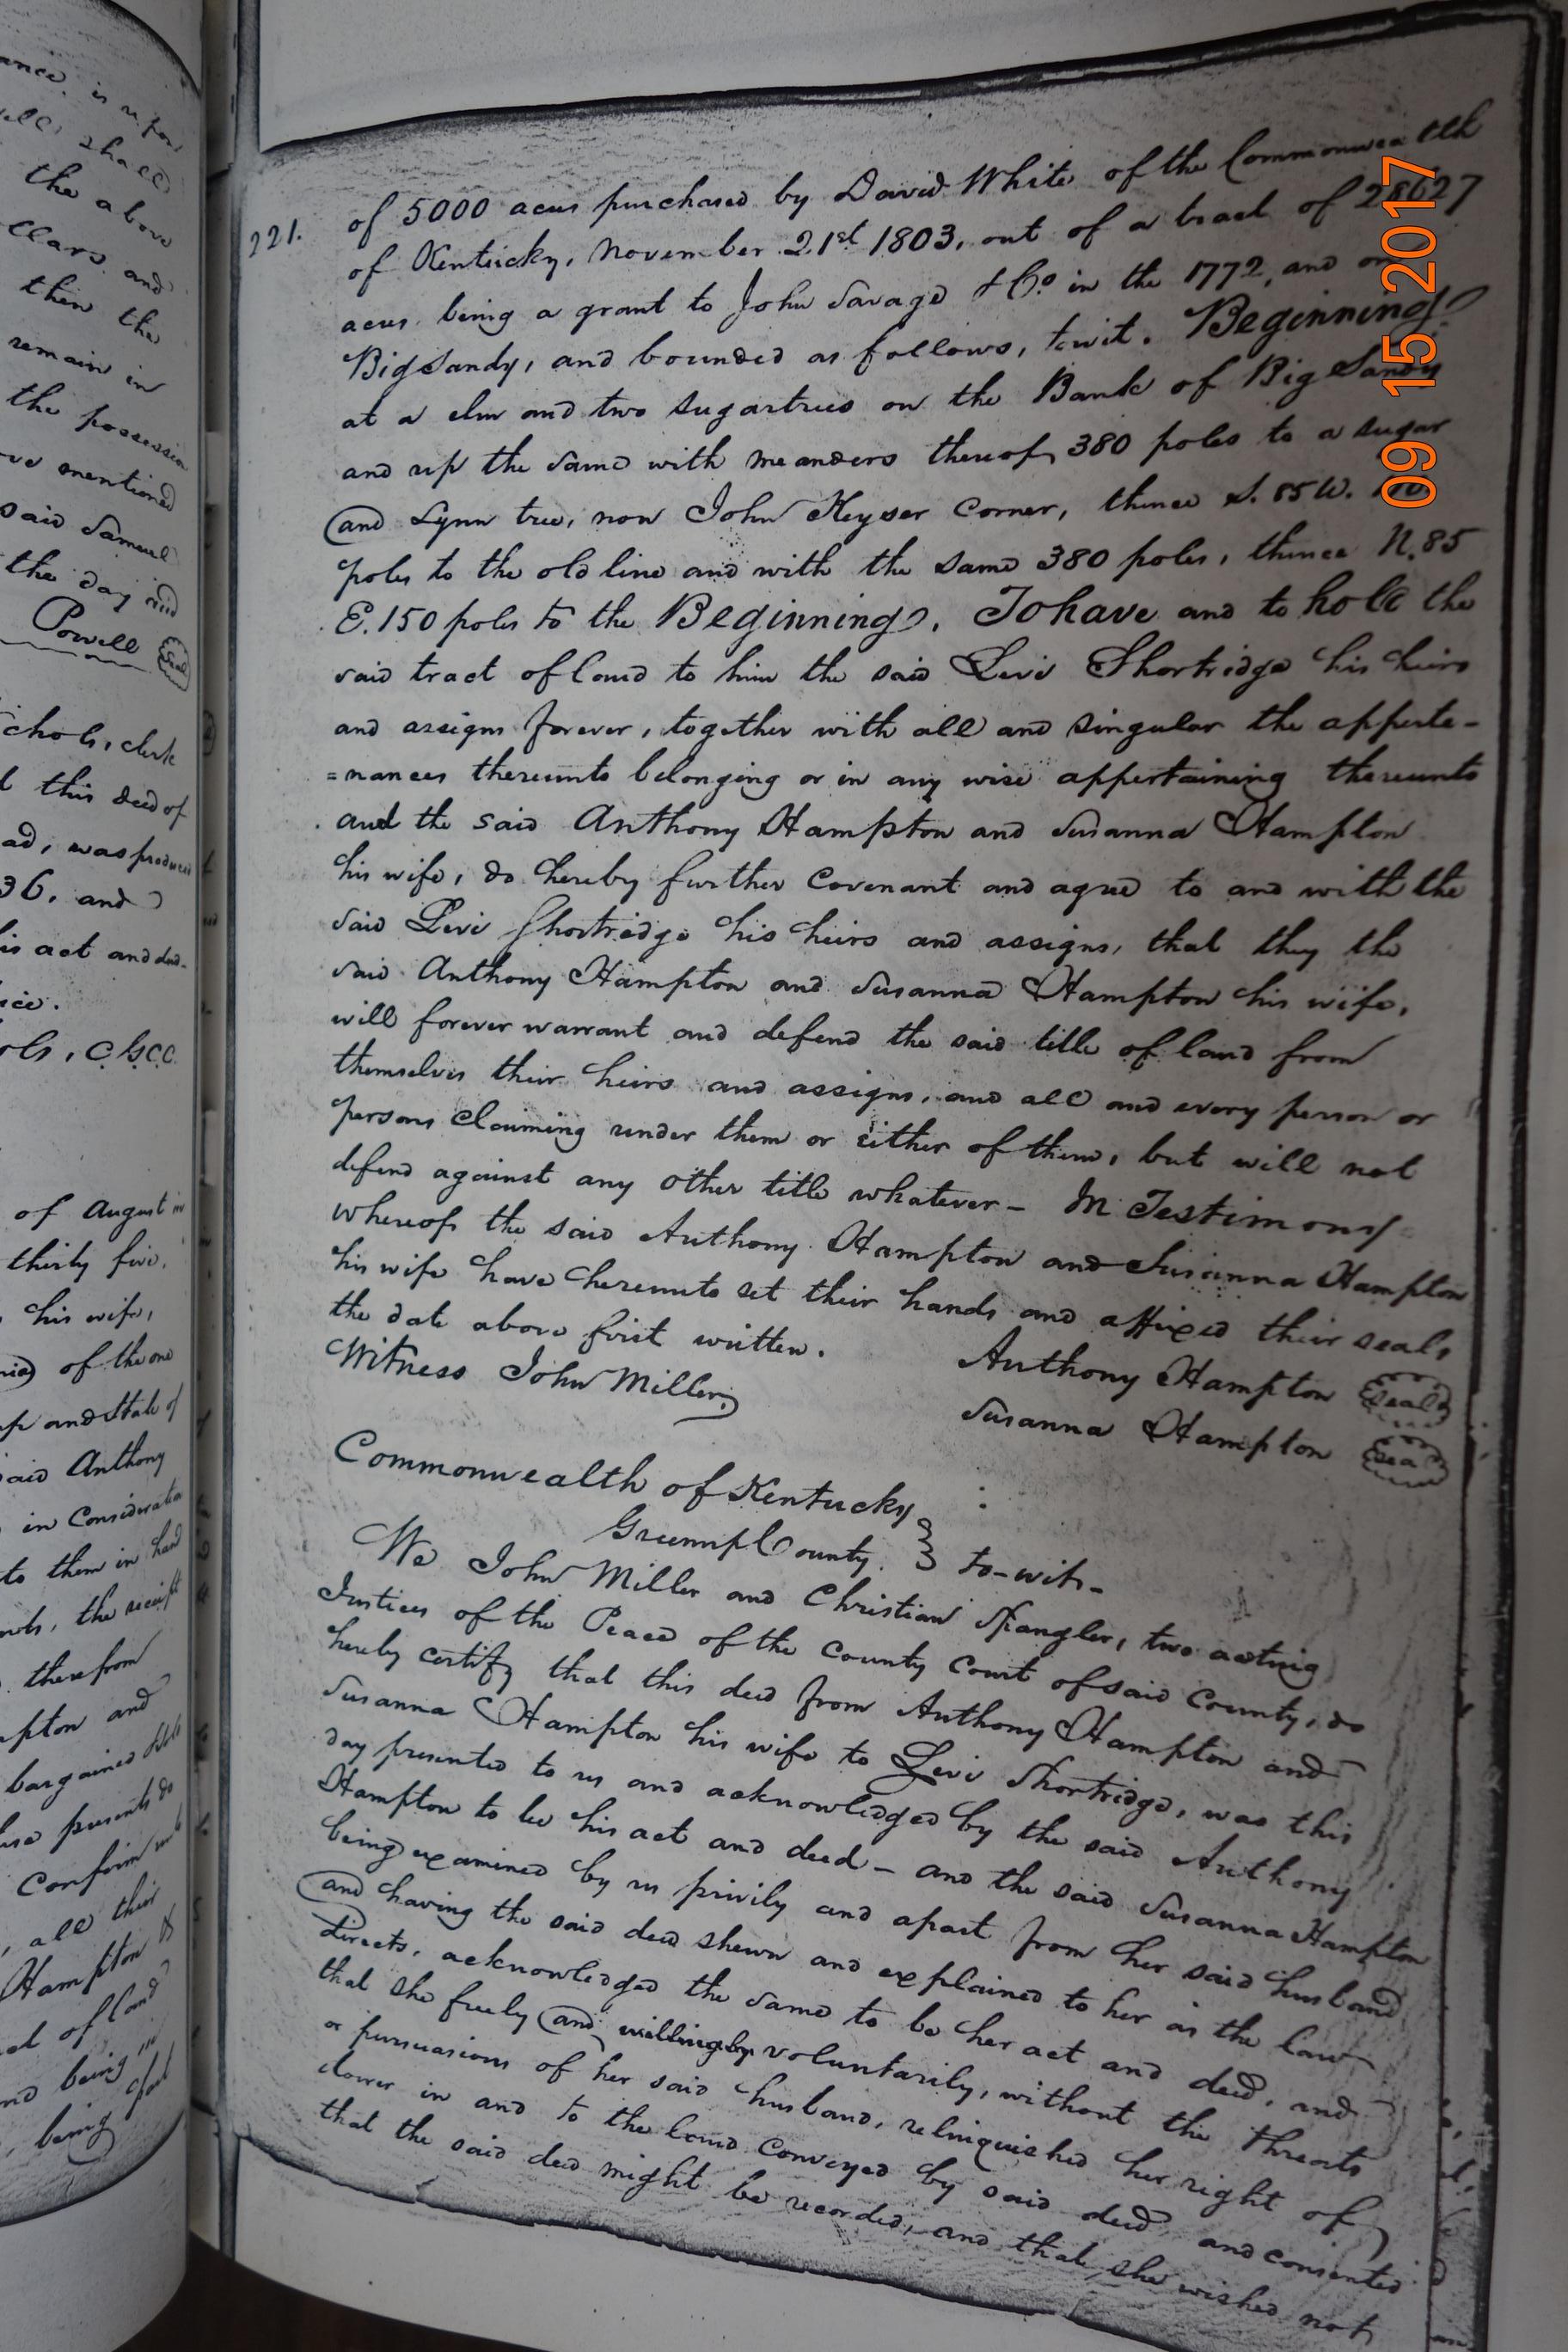 ance, is
shall
the above
llars and
then the
remain in
the possession
mentioned
said Samuel
the day and
Powell Seal
chols, clerk
this deed of
ad, was produced
36. and
his act and deed
ice.
ols, C.G.C.C.
of August
thirty five.
his wife,
of the one
and State of
said Anthony
in Consideration
to them in hand
the receipt
therefrom
mpton and
bargained
presents do
confirm
all their
Hampton
of land
and being in
being
221.
of 5000 acres purchased by David White of the Commonwealth
of Kentucky, November 21st 1803, out of a tract of 28627
acres being a grant to John Savage & Co. in the 1772, and on
Big Sandy, and bounded as follows, towit. Beginning
at a elm and two sugartrees on the Bank of Big Sandy
and up the same with meanders thereof, 380 poles to a sugar
and Lynn tree, now John Keyser Corner, thence S. 85 W.
poles to the old line and with the same 380 poles, thence N. 85
E. 150 poles to the Beginning. To have and to hold the
said tract of land to him the said Levi Shortridge his heirs
and assigns forever, together with all and singular the apperte-
=nances thereunto belonging or in any wise appertaining thereunto
and the said Anthony Hampton and Susanna Hampton
his wife, do hereby further covenant and agree to and with the
said Levi Shortridge his heirs and assigns, that they the
said Anthony Hampton and Susanna Hampton his wife,
will forever warrant and defend the said title of land from
themselves their heirs and assigns, and all and every person or
persons claiming under them or either of them, but will not
defend against any other title whatever - In Testimony
whereof the said Anthony Hampton and Susanna Hampton
his wife have hereunto set their hands and affixed their seals
the date above first written.
Anthony Hampton Seal
Witness John Miller
Susanna Hampton Seal
Commonwealth of Kentucky
Greenup County. } to-wit-
We John Miller and Christian Spangler, two acting
Justices of the Peace of the County Court of said County, do
hereby certify that this deed from Anthony Hampton and
Susanna Hampton his wife to Levi Shortridge, was this
day presented to us and acknowledged by the said Anthony
Hampton to be his act and deed - and the said Susanna Hampton
being examined by us privily and apart from her said husband
and having the said deed shewn and explained to her as the law
directs, acknowledged the same to be her act and deed, and
that she freely and willingly voluntarily, without the threats
or pursuasions of her said husband, relinquished her right of
dower in and to the land conveyed by said deed, and consented
that the said deed might be recorded, and that she wished not
09 15 2017